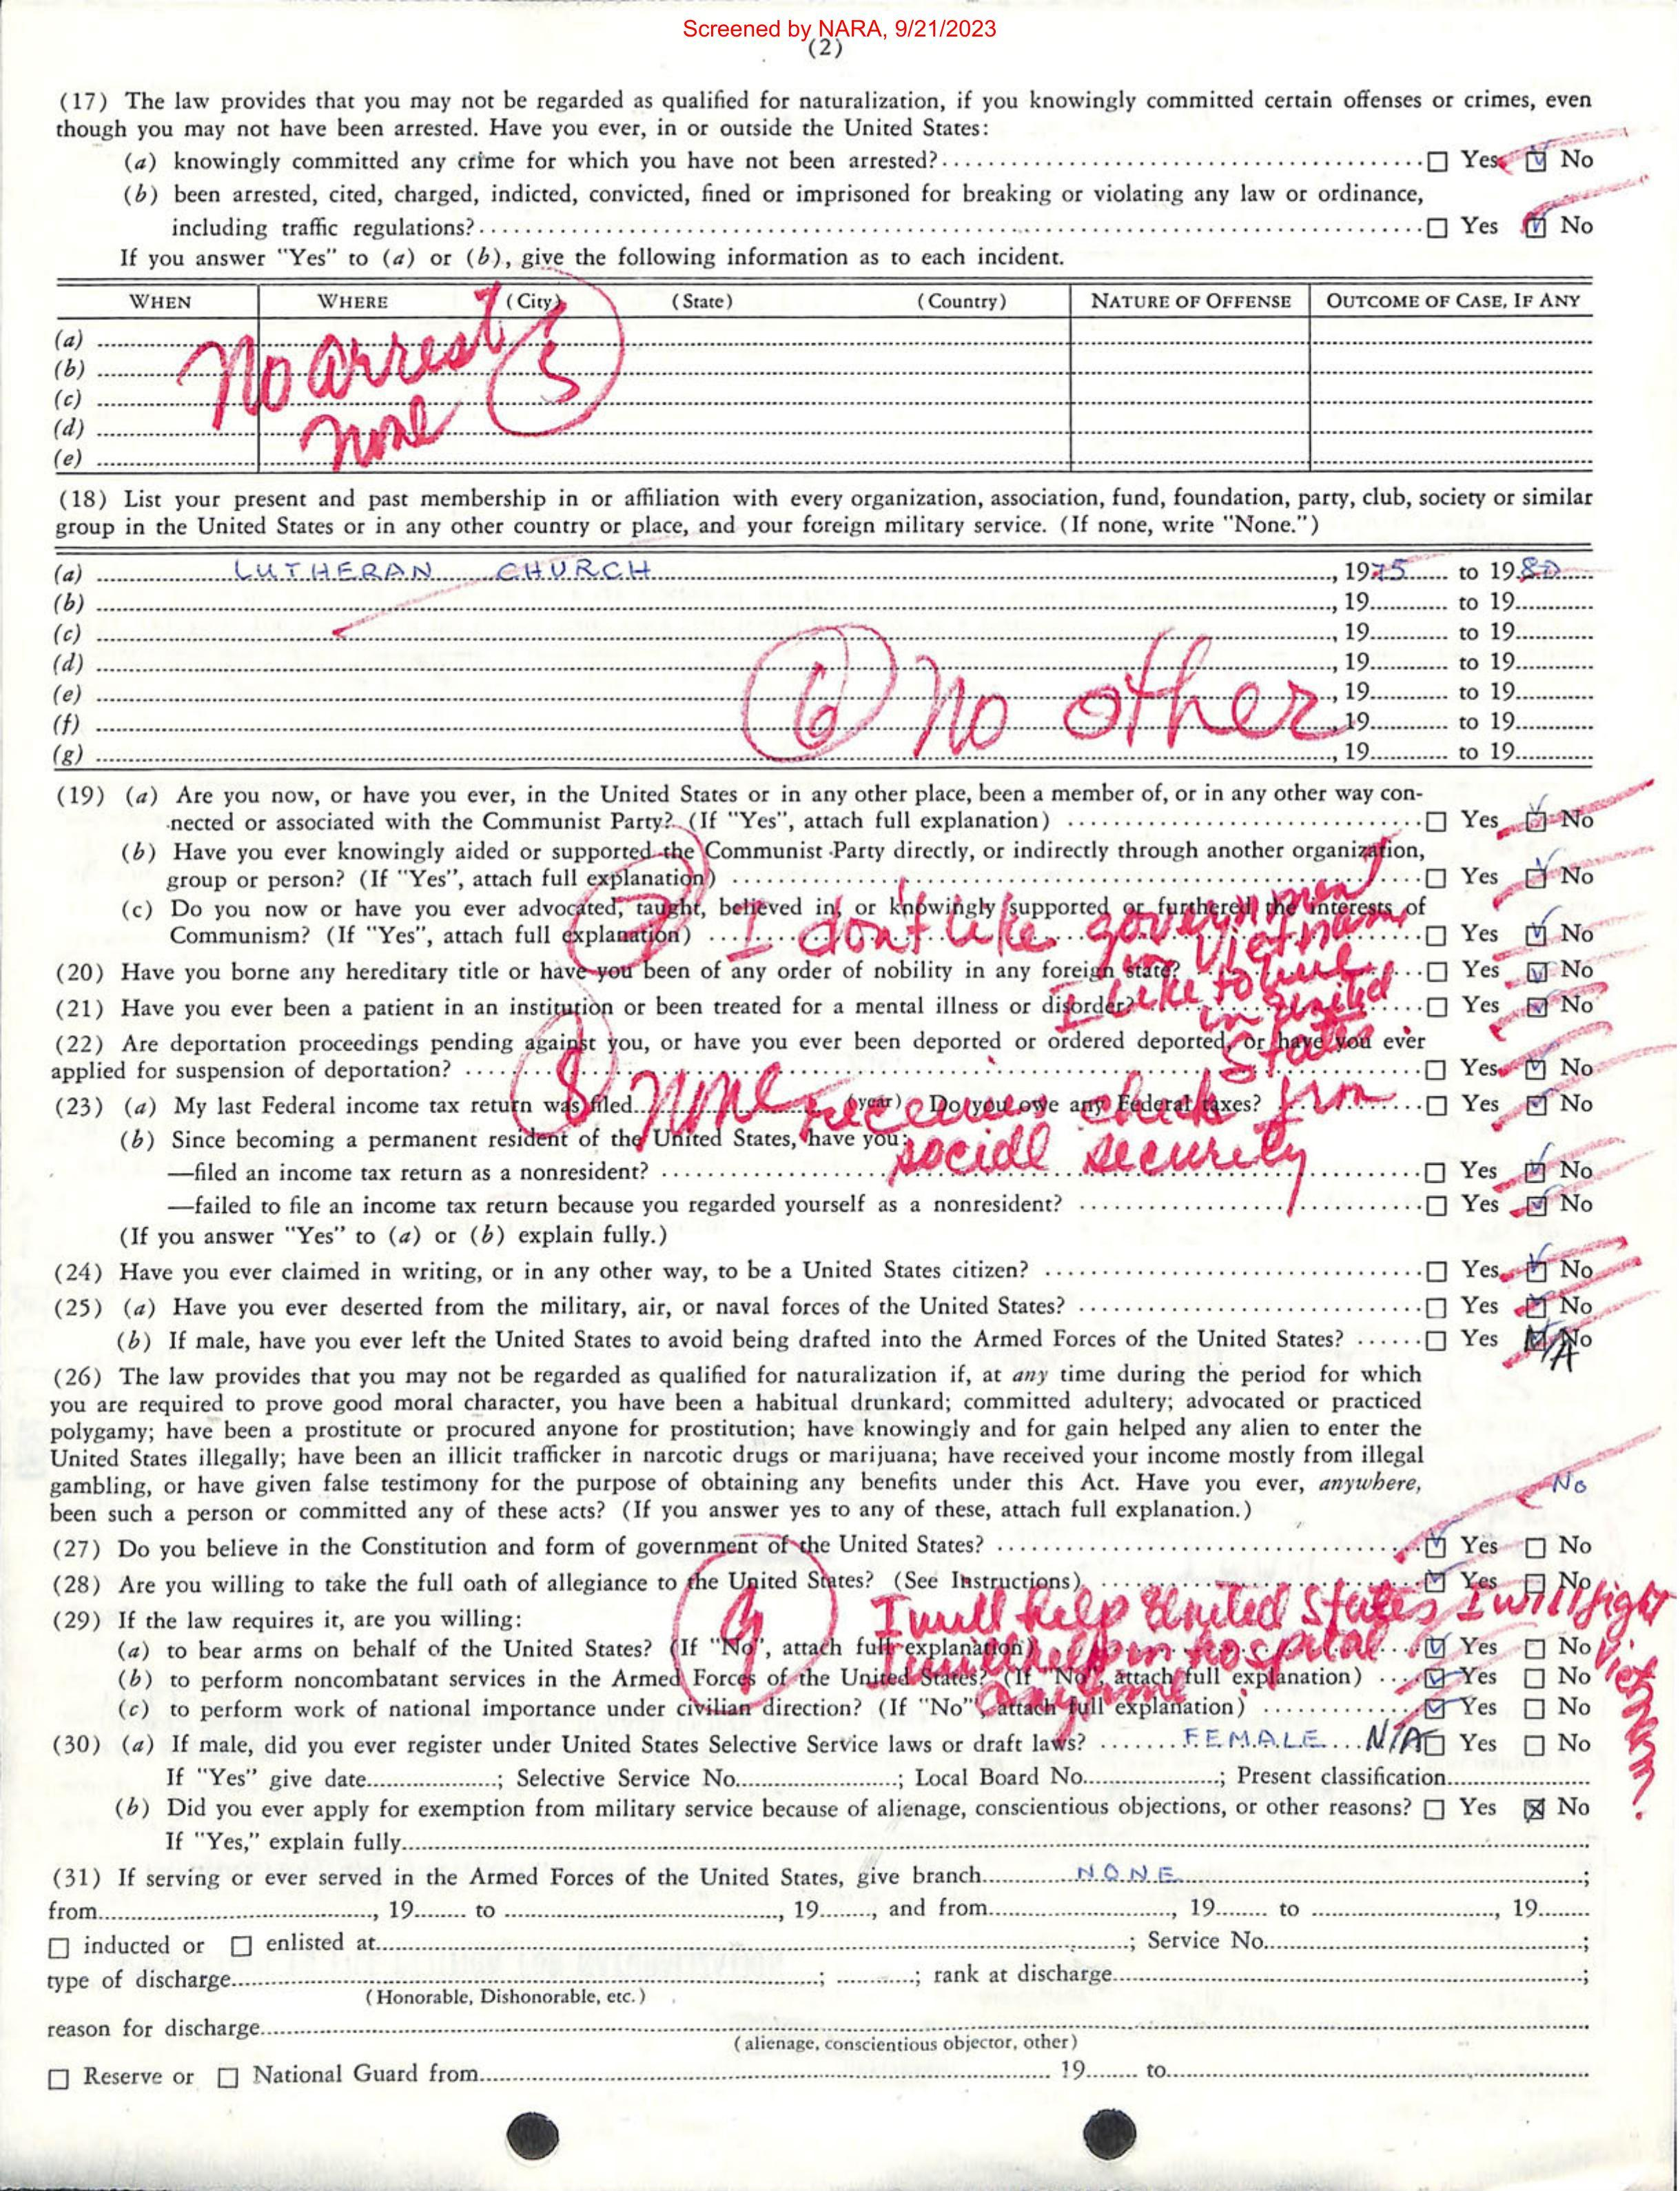 Screened by NARA, 9/21/2023
(2)
(17) The law provides that you may not be regarded as qualified for naturalization, if you knowingly committed certain offenses or crimes, even
though you may not have been arrested. Have you ever, in or outside the United States:
(a) knowingly committed any crime for which you have not been arrested? ☐ Yes ☑ No
(b) been arrested, cited, charged, indicted, convicted, fined or imprisoned for breaking or violating any law or ordinance,
including traffic regulations? ☐ Yes ☑ No
If you answer "Yes" to (a) or (b), give the following information as to each incident.
WHEN WHERE (City) (State) (Country) NATURE OF OFFENSE OUTCOME OF CASE, IF ANY
(a)
(b) No arrest 5
(c)
(d) none
(e)
(18) List your present and past membership in or affiliation with every organization, association, fund, foundation, party, club, society or similar
group in the United States or in any other country or place, and your foreign military service. (If none, write "None.")
(a) LUTHERAN CHURCH, 1975 to 1980
(b) , 19 to 19
(c) , 19 to 19
(d) , 19 to 19
(e) , 19 to 19
(f) 6 No other 19 to 19
(g) , 19 to 19
(19) (a) Are you now, or have you ever, in the United States or in any other place, been a member of, or in any other way con-
nected or associated with the Communist Party? (If "Yes", attach full explanation) ☐ Yes ☑ No
(b) Have you ever knowingly aided or supported the Communist Party directly, or indirectly through another organization,
group or person? (If "Yes", attach full explanation) ☐ Yes ☑ No
(c) Do you now or have you ever advocated, taught, believed in, or knowingly supported or furthered the interests of
Communism? (If "Yes", attach full explanation) ☐ Yes ☑ No
7 I don't like government
Vietnam
I like to live
in United
States
(20) Have you borne any hereditary title or have you been of any order of nobility in any foreign state? ☐ Yes ☑ No
(21) Have you ever been a patient in an institution or been treated for a mental illness or disorder? ☐ Yes ☑ No
(22) Are deportation proceedings pending against you, or have you ever been deported or ordered deported, or have you ever
applied for suspension of deportation? ☐ Yes ☑ No
(23) (a) My last Federal income tax return was filed none (year) Do you owe any Federal taxes? ☐ Yes ☑ No
8 receives check from
social security
(b) Since becoming a permanent resident of the United States, have you:
—filed an income tax return as a nonresident? ☐ Yes ☑ No
—failed to file an income tax return because you regarded yourself as a nonresident? ☐ Yes ☑ No
(If you answer "Yes" to (a) or (b) explain fully.)
(24) Have you ever claimed in writing, or in any other way, to be a United States citizen? ☐ Yes ☑ No
(25) (a) Have you ever deserted from the military, air, or naval forces of the United States? ☐ Yes ☑ No
(b) If male, have you ever left the United States to avoid being drafted into the Armed Forces of the United States? ☐ Yes ☑ No N/A
(26) The law provides that you may not be regarded as qualified for naturalization if, at any time during the period for which
you are required to prove good moral character, you have been a habitual drunkard; committed adultery; advocated or practiced
polygamy; have been a prostitute or procured anyone for prostitution; have knowingly and for gain helped any alien to enter the
United States illegally; have been an illicit trafficker in narcotic drugs or marijuana; have received your income mostly from illegal
gambling, or have given false testimony for the purpose of obtaining any benefits under this Act. Have you ever, anywhere,
been such a person or committed any of these acts? (If you answer yes to any of these, attach full explanation.) No
(27) Do you believe in the Constitution and form of government of the United States? ☑ Yes ☐ No
(28) Are you willing to take the full oath of allegiance to the United States? (See Instructions) ☑ Yes ☐ No
9 I will help United States I will fight Vietnam
I will help in hospital
anytime
(29) If the law requires it, are you willing:
(a) to bear arms on behalf of the United States? (If "No", attach full explanation) ☑ Yes ☐ No
(b) to perform noncombatant services in the Armed Forces of the United States? (If "No", attach full explanation) ☑ Yes ☐ No
(c) to perform work of national importance under civilian direction? (If "No", attach full explanation) ☑ Yes ☐ No
(30) (a) If male, did you ever register under United States Selective Service laws or draft laws? FEMALE N/A ☐ Yes ☐ No
If "Yes" give date ; Selective Service No. ; Local Board No. ; Present classification
(b) Did you ever apply for exemption from military service because of alienage, conscientious objections, or other reasons? ☐ Yes ☒ No
If "Yes," explain fully
(31) If serving or ever served in the Armed Forces of the United States, give branch NONE ;
from , 19 to , 19 , and from , 19 to , 19
☐ inducted or ☐ enlisted at ; Service No. ;
type of discharge ; ; rank at discharge ;
(Honorable, Dishonorable, etc.)
reason for discharge
(alienage, conscientious objector, other)
☐ Reserve or ☐ National Guard from 19 to